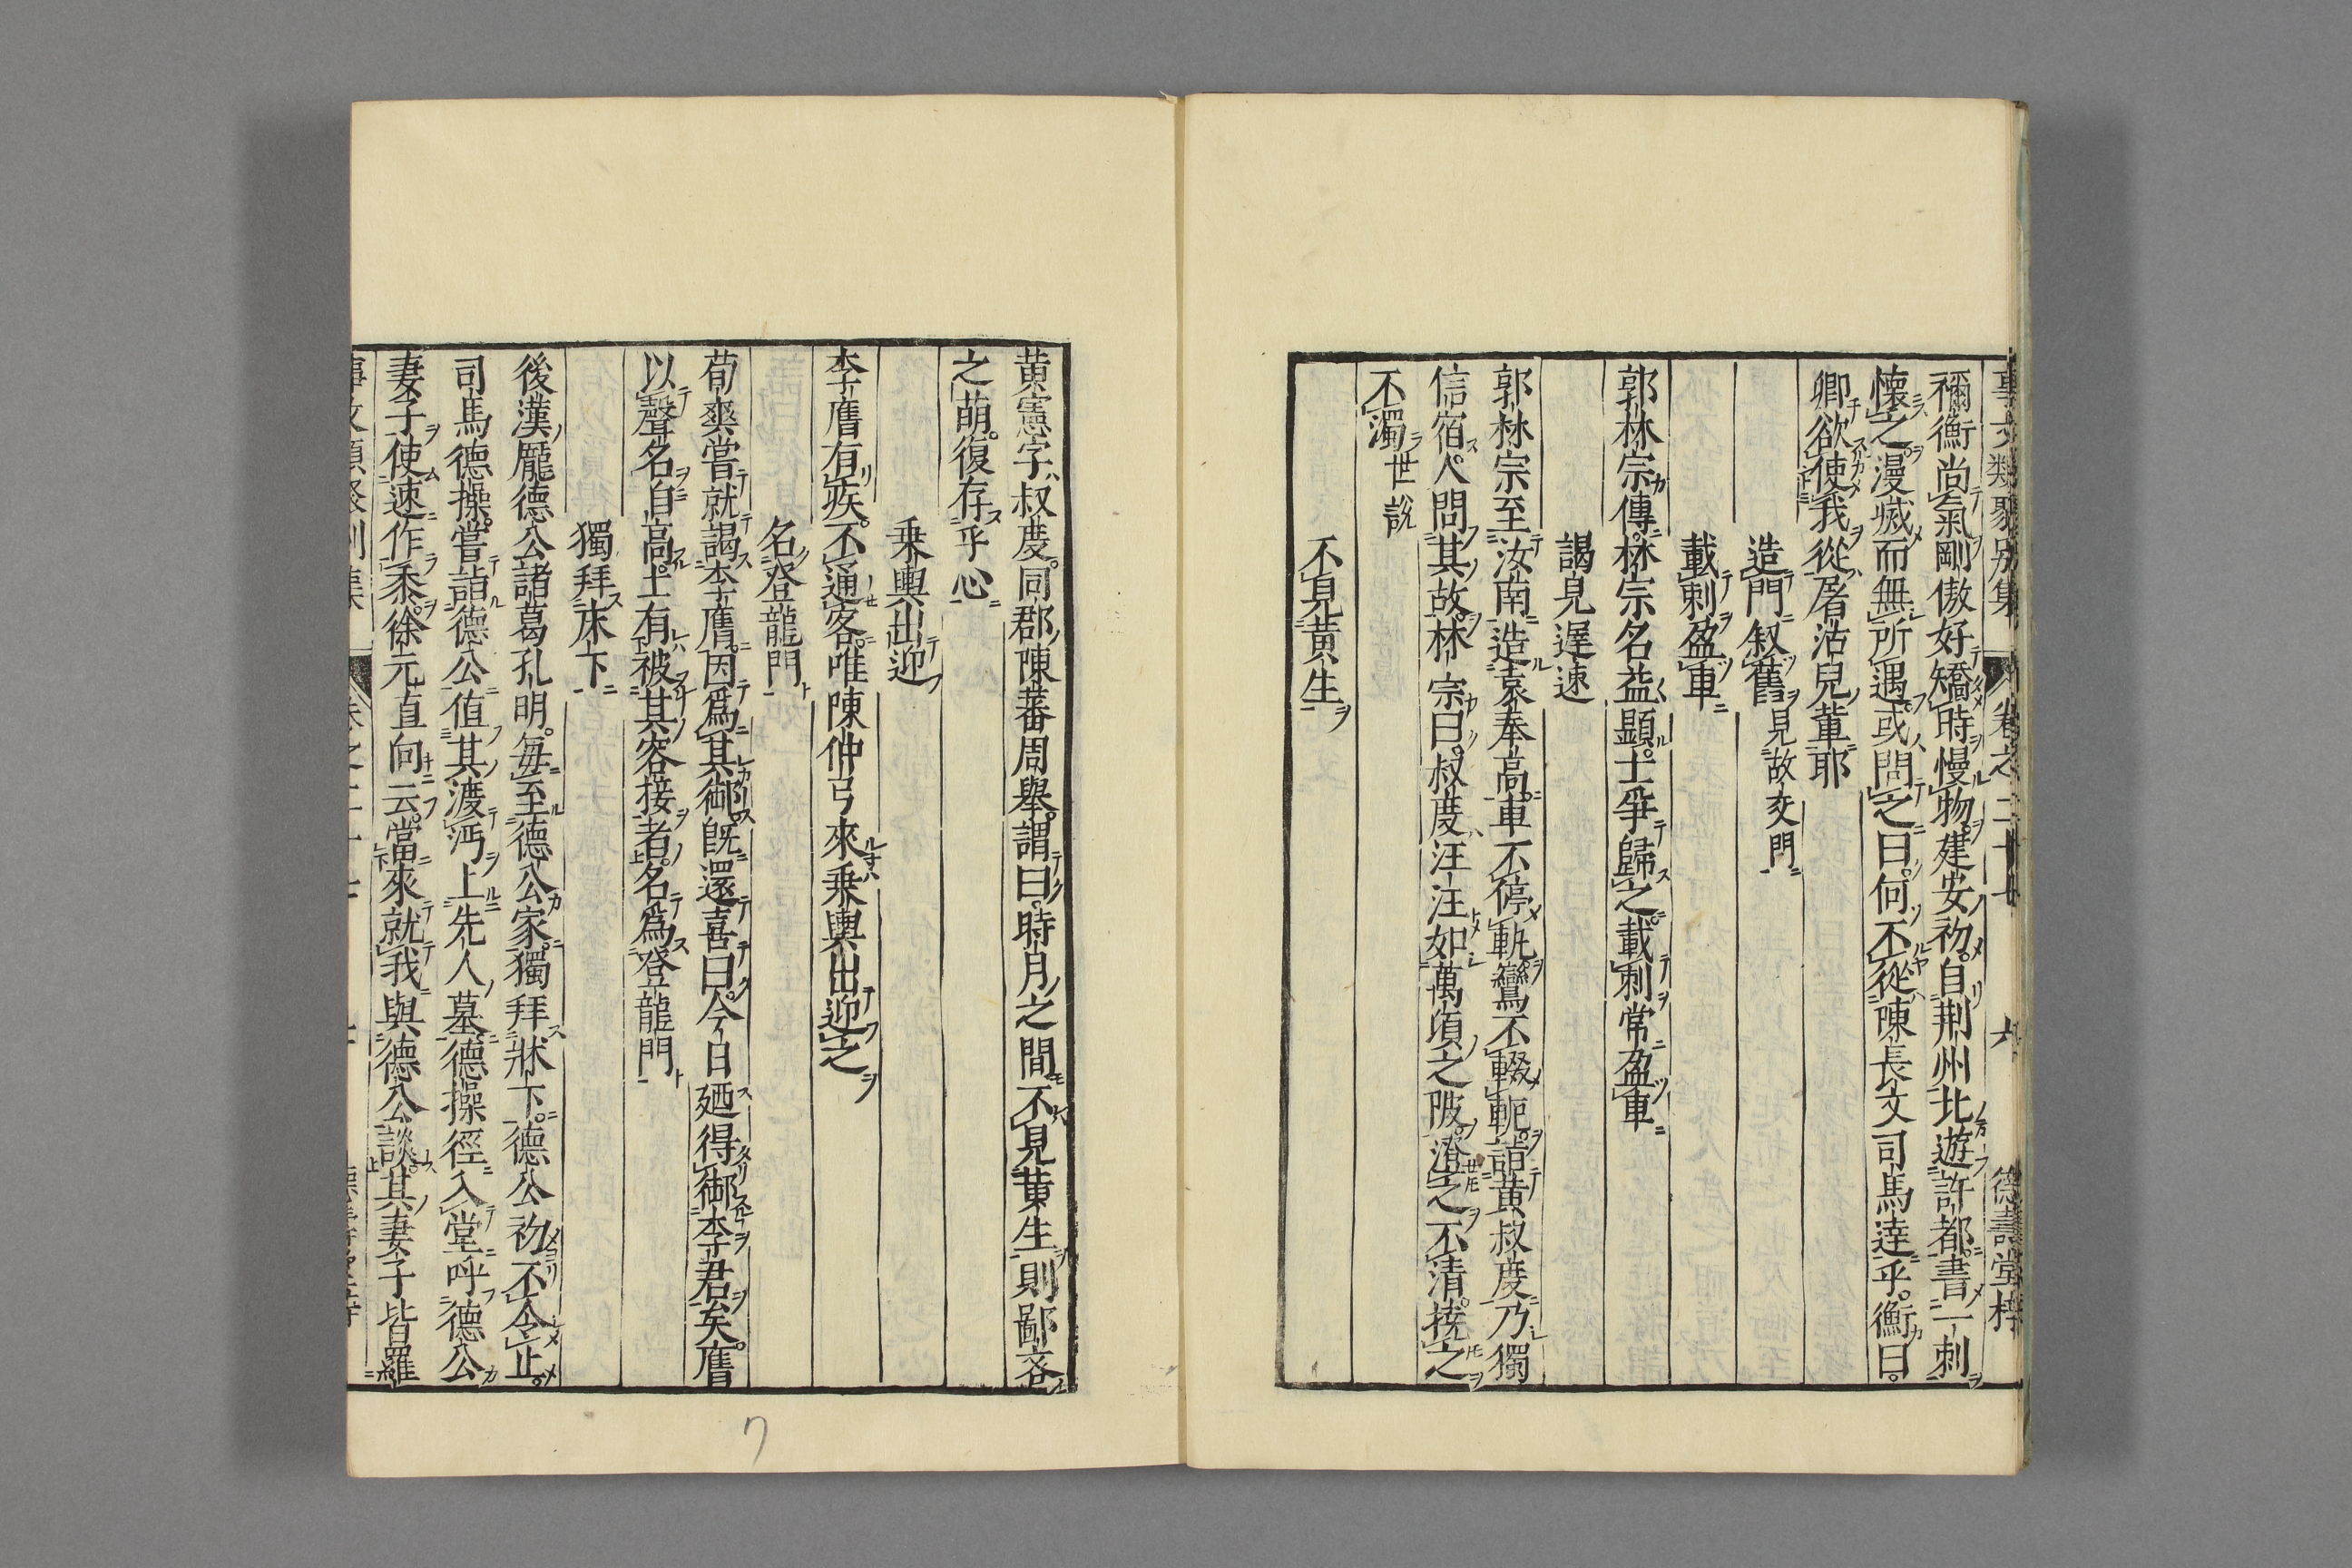 事文類聚別集 卷之二十七 六 德壽堂梓
禰衡尚氣剛傲好矯時慢物建安初自荆州北遊許都書一刺
懷之漫滅而無所遇或問之曰何不從陳長文司馬達乎衡曰
卿欲使我從屠沽兒輩耶
造門叙舊見故交門
載刺盈車
郭林宗傳林宗名益顯士爭歸之載刺常盈車
謁見遲速
郭林宗至汝南造袁奉高車不停軌鸞不輟軛詣黃叔度乃獨
信宿人問其故林宗曰叔度汪汪如萬頃之陂澄之不清撓之
不濁世說
不見黃生
黄憲字叔度同郡陳蕃周舉謂曰時月之間不見黄生則鄙吝
之萌復存乎心
乗輿出迎
李膺有疾不通客唯陳仲弓來乗輿出迎之
名登龍門
荀爽嘗就謁李膺因爲其御旣還喜曰今日廼得御李君矣膺
以聲名自高士有被其容接者名爲登龍門
獨拜床下
後漢龐德公諸葛孔明每至德公家獨拜牀下德公初不令止
司馬德操嘗詣德公值其渡沔上先人墓德操徑入堂呼德公
妻子使速作黍徐元直向云當來就我與德公談其妻子皆羅